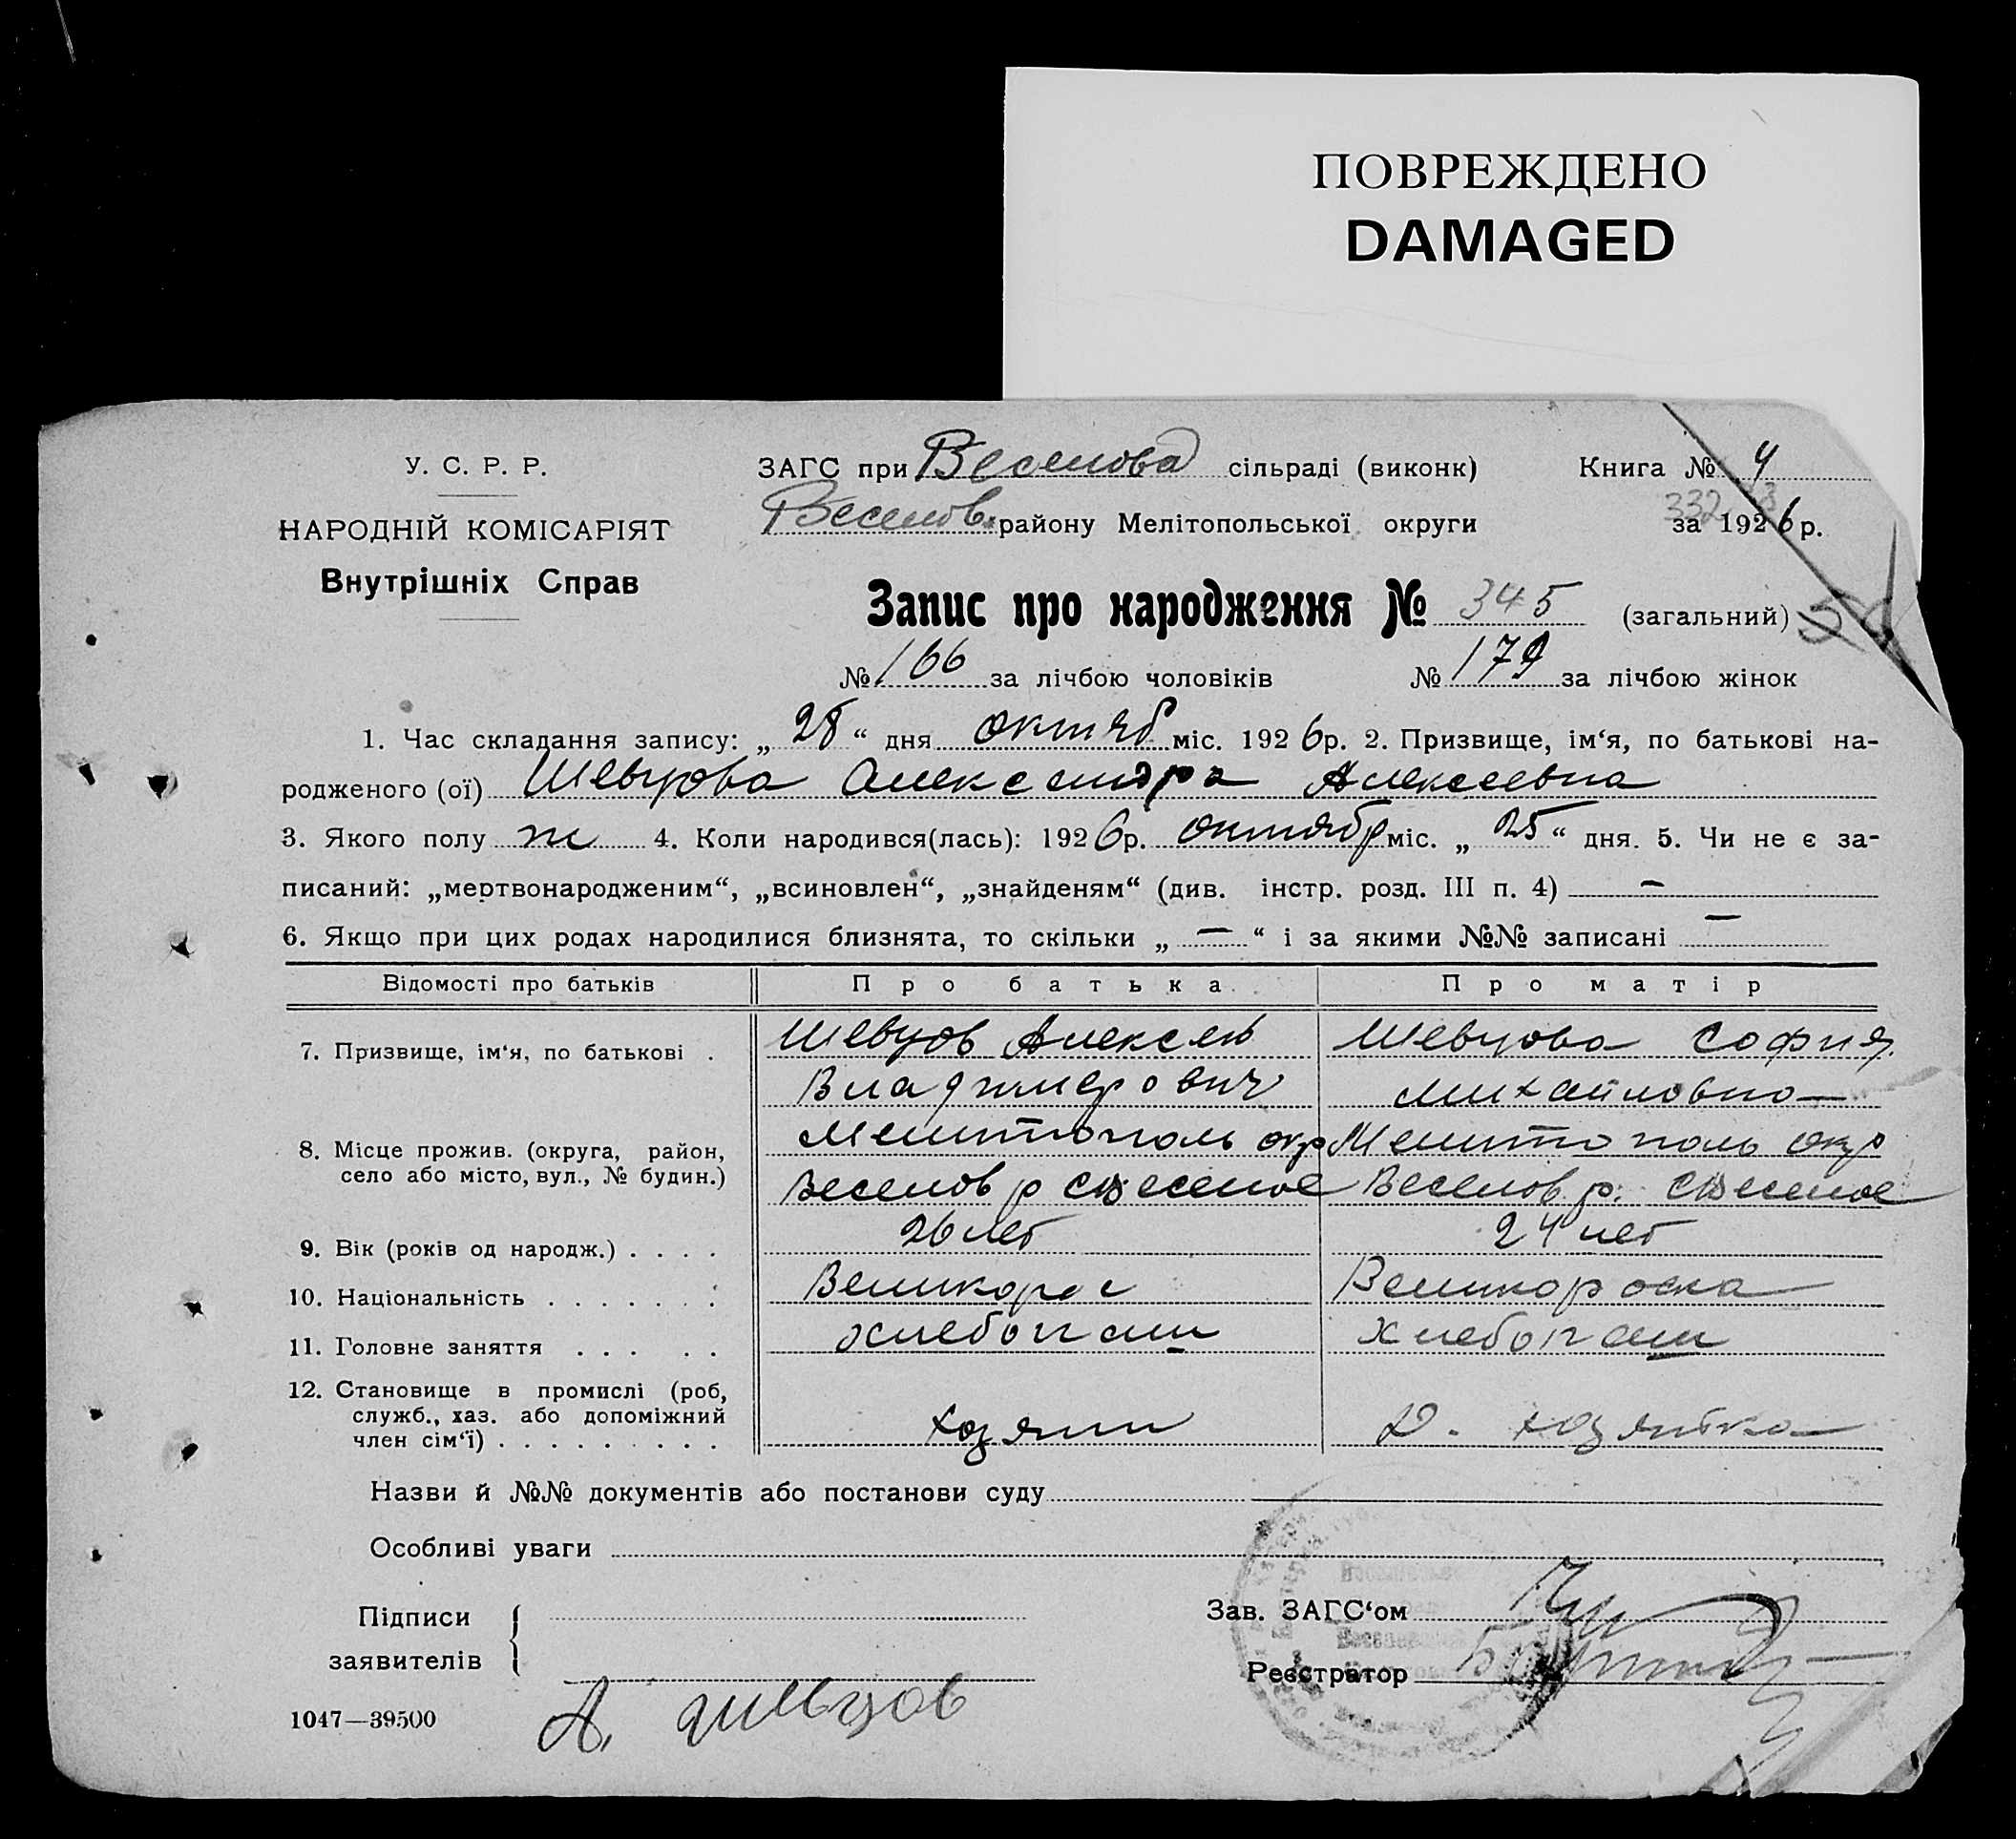 ПОВРЕЖДЕНО
DAMAGED
У. С. Р. Р.
НАРОДНІЙ КОМІСАРІЯТ
Внутрішніх Справ
ЗАГС при Веселова сільраді (виконк)
Книга № 4
Веселов. району Мелітопольської округи
за 1926 р.
Запис про народження № 345 (загальний)
№ 166 за лічбою чоловіків № 179 за лічбою жінок
1. Час складання запису: „28“ дня октяб міс. 1926 р. 2. Призвище, ім‘я, по батькові на-
родженого (ої) Шевцова Александра Алексеевна
3. Якого полу ж 4. Коли народився(лась): 1926 р. октябр міс. „25“ дня. 5. Чи не є за-
писаний: „мертвонародженим“, „всиновлен“, „знайденям“ (див. інстр. розд. III п. 4) —
6. Якщо при цих родах народилися близнята, то скільки „—“ і за якими №№ записані —
Відомості про батьків Про батька Про матір
7. Призвище, ім‘я, по батькові . Шевцов Алексей Шевцова София
Владимирович Михайловна
8. Місце прожив. (округа, район, Мелитополь окр Мелитополь окр
село або місто, вул., № будин.) Веселов р с Веселое Веселов. р. с Веселое
9. Вік (років од народж.) . . . . 26 лет 24 лет
10. Національність . . . . . . . Великорос Великороска
11. Головне заняття . . . . . хлебопаш хлебопаш
12. Становище в промислі (роб,
служб., хаз. або допоміжний
член сім‘ї) . . . . . . . . . хозяин Д. хозяйка
Назви й №№ документів або постанови суду
Особливі уваги
Підписи
заявителів
Зав. ЗАГС‘ом
Реєстратор
1047—39500
А. Шевцов